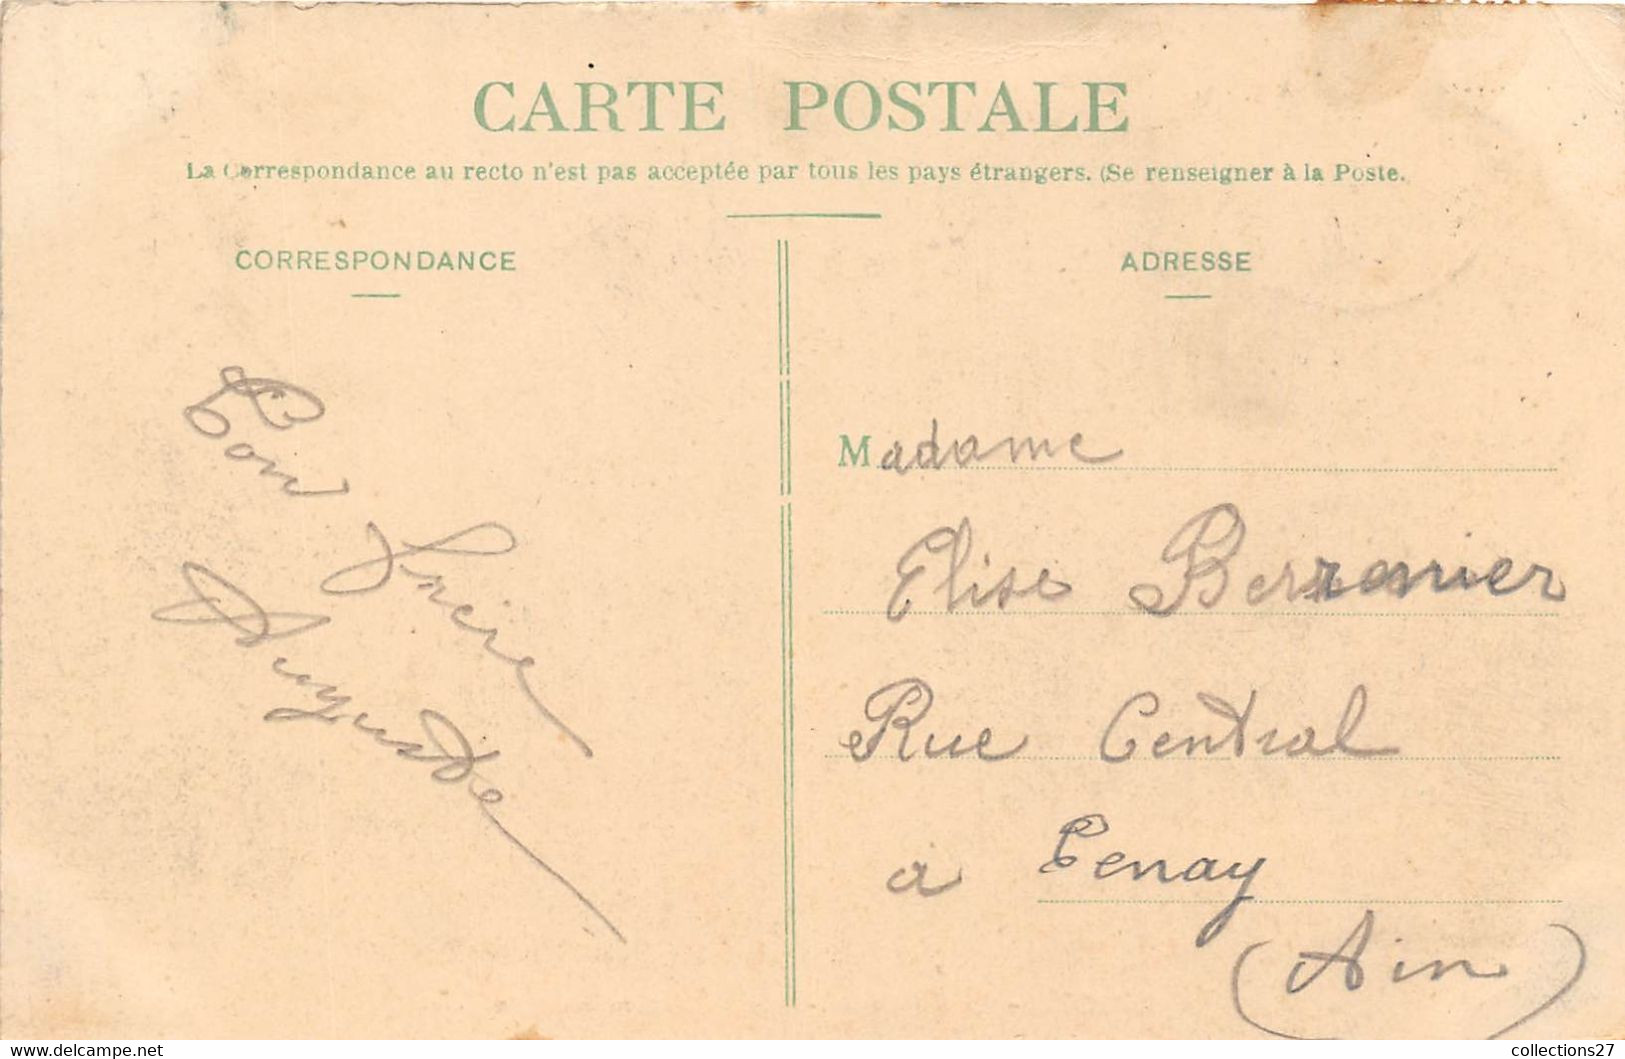 CARTE POSTALE
La Correspondance au recto n'est pas acceptée par tous les pays étrangers. (Se renseigner à la Poste.
CORRESPONDANCE
Ton frère
Auguste
ADRESSE
Madame
Elise
Rue Central
a Tenay
(Ain)
collections27